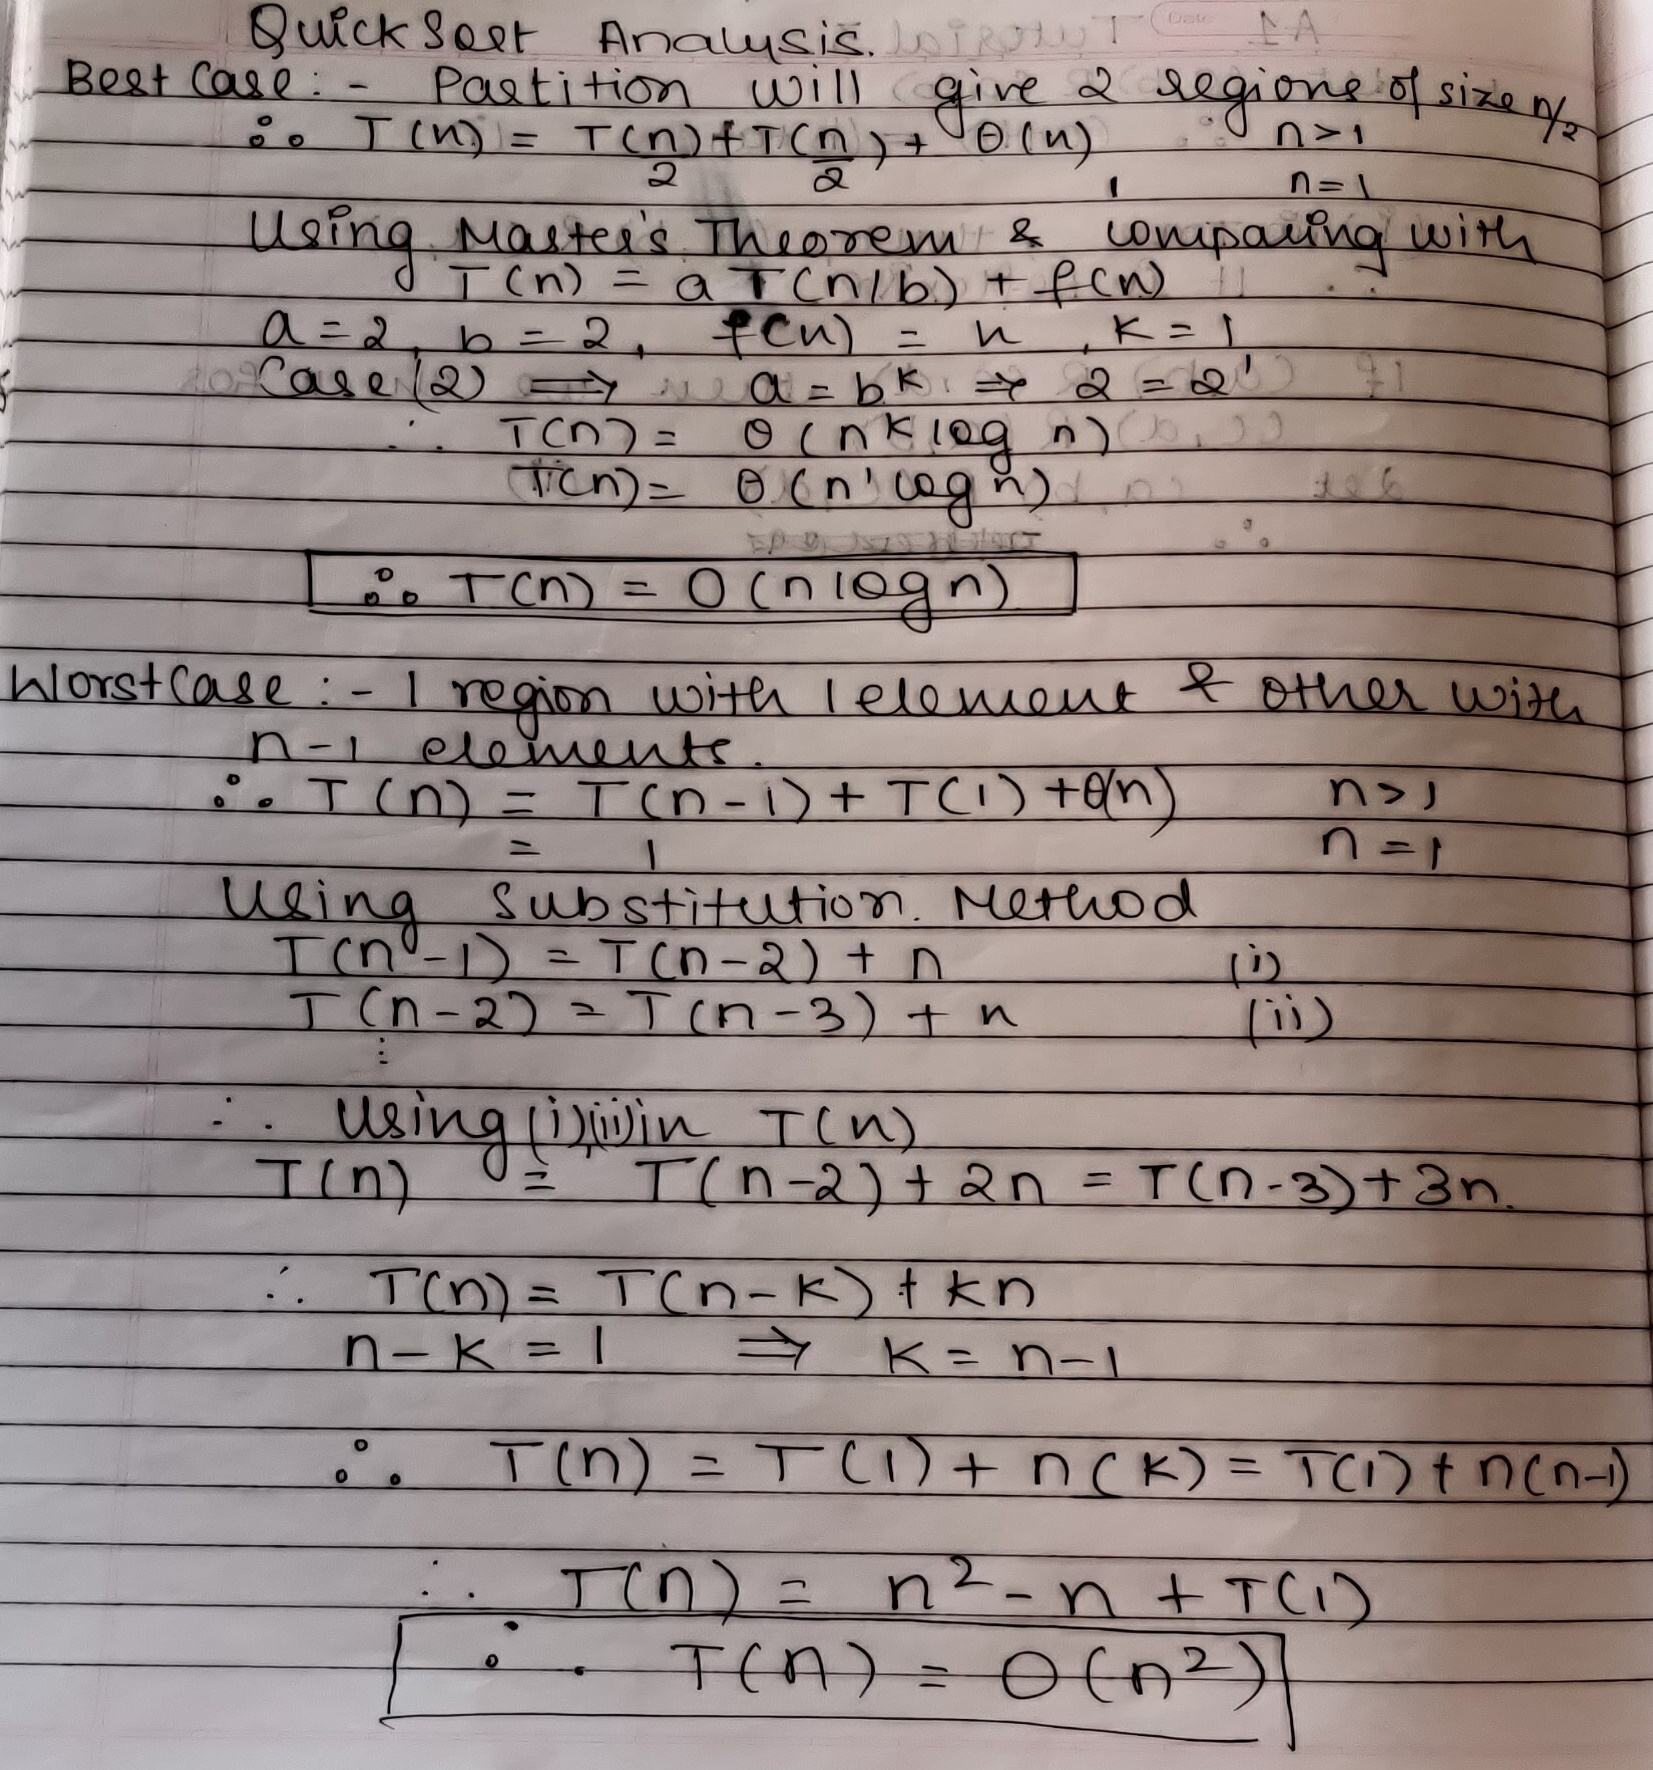 Quick Sort Analysis.
Best Case :- Partition will give 2 regions of size n/2
∴ T(n) = T(n/2) + T(n/2) + θ(n) n>1
1 n=1
Using Master's Theorem & comparing with
T(n) = a T(n/b) + f(n)
a = 2, b = 2, f(n) = n, K = 1
Case (2) ⟹ a = b^K ⇒ 2 = 2^1
∴ T(n) = θ(n^K log n)
T(n) = θ(n^1 log n)
∴ T(n) = O(n log n)
Worst Case :- 1 region with 1 element & other with
n-1 elements.
∴ T(n) = T(n-1) + T(1) + θ(n) n>1
= 1 n=1
Using Substitution Method
T(n-1) = T(n-2) + n (i)
T(n-2) = T(n-3) + n (ii)
⋮
∴ Using (i),(ii) in T(n)
T(n) = T(n-2) + 2n = T(n-3) + 3n.
∴ T(n) = T(n-K) + Kn
n-K = 1 ⇒ K = n-1
∴ T(n) = T(1) + n(K) = T(1) + n(n-1)
∴ T(n) = n² - n + T(1)
∴ T(n) = O(n²)